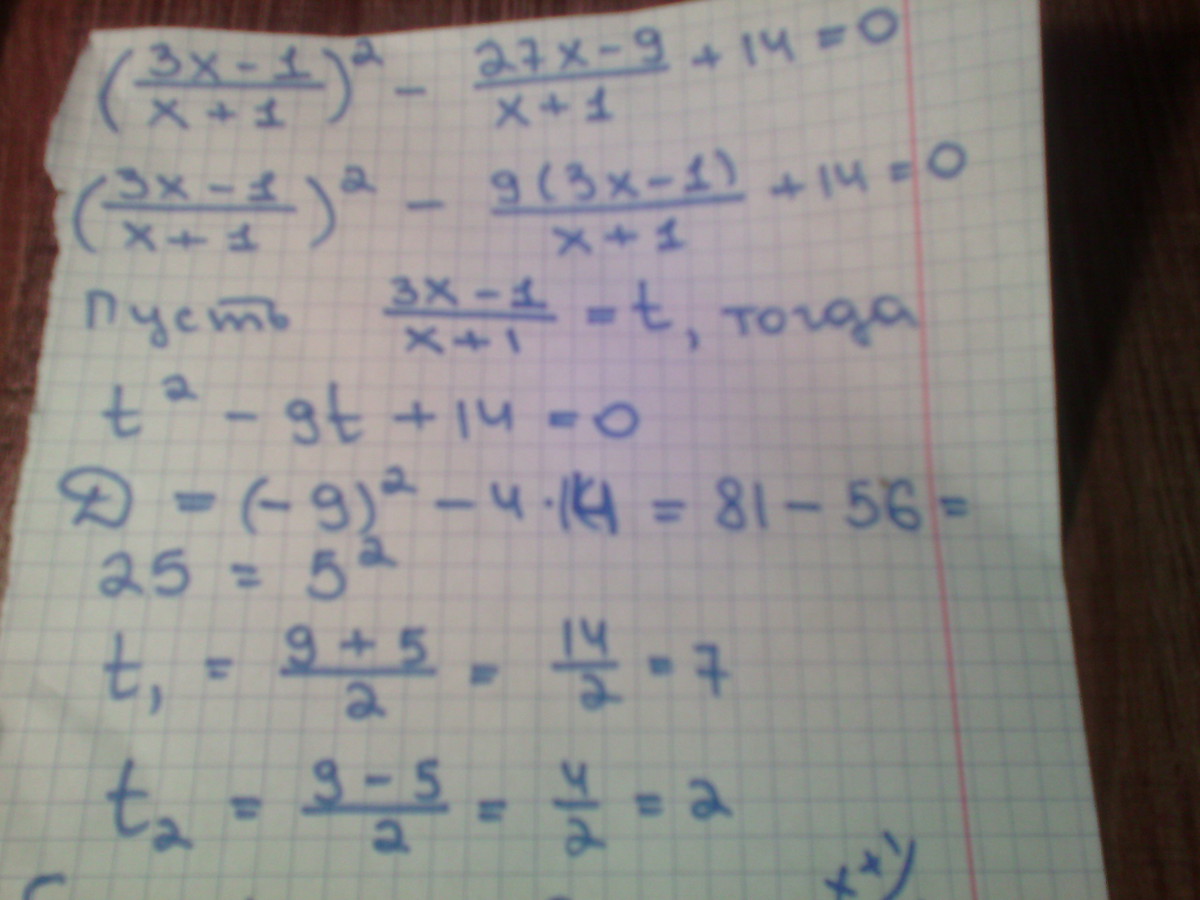 (3x-1/x+1)² - 27x-9/x+1 + 14 = 0
(3x-1/x+1)² - 9(3x-1)/x+1 + 14 = 0
Пусть 3x-1/x+1 = t, тогда
t² - 9t + 14 = 0
D = (-9)² - 4·14 = 81 - 56 =
25 = 5²
t₁ = 9+5/2 = 14/2 = 7
t₂ = 9-5/2 = 4/2 = 2
x+1)